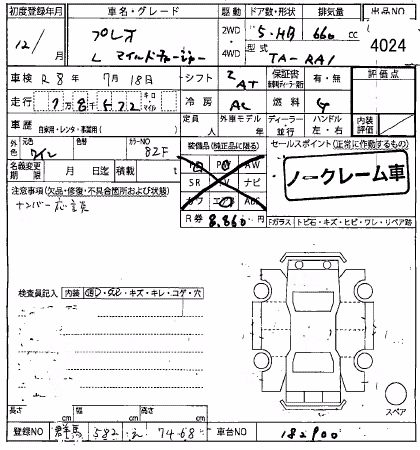 初度登録年月 車名・グレード 駆動 ドア数・形状 排気量 出品NO
12/ プレオ 2WD 5・HB 660 cc 4024
L マイルドチャージャー 4WD 型式 TA-RA1
車検 R8年7月18日 シフト AT 保証書 有・無 評価点
走行 78572 キロ マイル 冷房 AC 燃料 G
車歴 自家用・レンタ・事業用( ) 定員 人 外車モデル 年 ディーラー 並行 ハンドル 左・右 内装評価
外色 元色 ワイン 色替 カラーNO 82F 装備品(純正品に限る) セールスポイント(正常に作動するもの)
名義変更期限 月 日迄 積載 t PS PW AW
SR TV ナビ ノークレーム車
注意事項(欠品・修復・不具合箇所および状態) カワ エアB
ナンバー応談 R券 8,860円
Fガラス トビ石・キズ・ヒビ・ワレ・リペア跡
検査員記入 内装 キズ・キレ・コゲ・穴
スペア
長さ cm 幅 cm 高さ cm
登録NO 群馬 582 7468 車台NO 182900